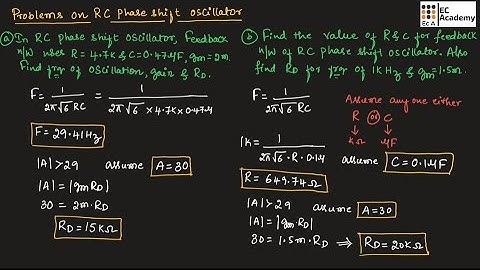 Problems on RC phase shift oscillator
EC
Academy
ECA
a) In RC phase shift oscillator, Feedback
n/w uses R = 4.7K & C = 0.47μF, gm = 2m.
Find freq of oscillation, gain & RD.
F = 1 / 2π√6 RC = 1 / 2π√6 × 4.7K × 0.47μ
F = 29.41Hz
|A| > 29 assume A = 30
|A| = |gm RD|
30 = 2m·RD
RD = 15KΩ
b) Find the value of R & C for feedback
n/w of RC phase shift oscillator. Also
find RD for freq of 1KHz & gm = 1.5m.
F = 1 / 2π√6 RC
Assume any one either
R or C
KΩ μF
1K = 1 / 2π√6·R·0.1μ
assume C = 0.1μF
R = 649.74Ω
|A| > 29 assume A = 30
|A| = |gm·RD|
30 = 1.5m·RD ⇒ RD = 20KΩ